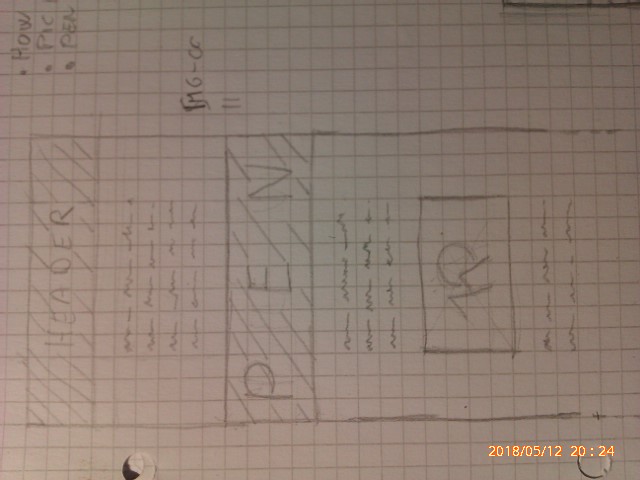 • HOW
• PIC
• PEN
IMG-CC
HEADER
PEN
2018/05/12 20:24